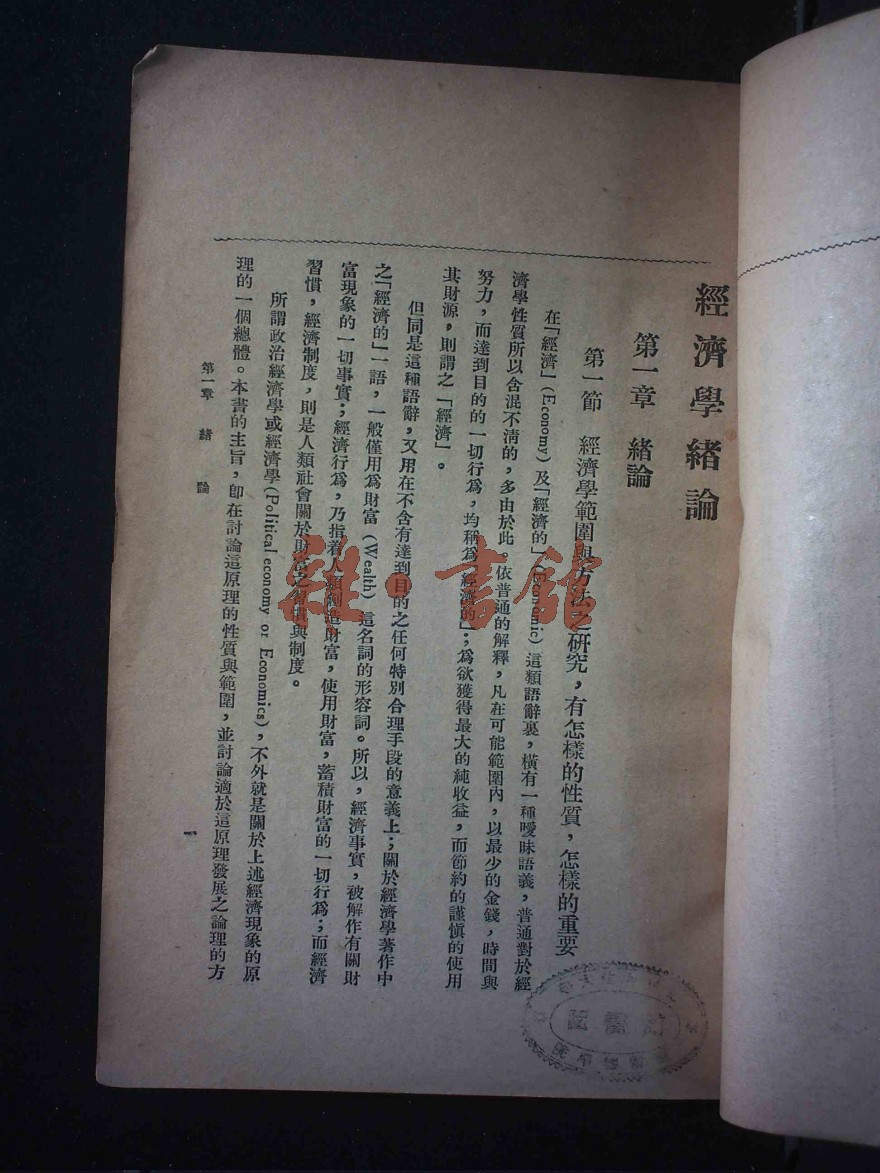 經濟學緒論
第一章 緒論
第一節 經濟學範圍與方法之研究，有怎樣的性質，怎樣的重要
在「經濟」(Economy)及「經濟的」(Economic)這類語辭裏，橫有一種曖昧語義，普通對於經
濟學性質所以含混不清的，多由於此。依普通的解釋，凡在可能範圍內，以最少的金錢，時間與
努力，而達到目的的一切行為，均稱為「經濟的」；為欲獲得最大的純收益，而節約的謹慎的使用
其財源，則謂之「經濟」。
但同是這種語辭，又用在不含有達到目的之任何特別合理手段的意義上；關於經濟學著作中
之「經濟的」一語，一般僅用為財富(Wealth)這名詞的形容詞。所以，經濟事實，被解作有關財
富現象的一切事實；經濟行為，乃指着人類創造財富，使用財富，蓄積財富的一切行為；而經濟
習慣，經濟制度，則是人類社會關於財富之習慣與制度。
所謂政治經濟學或經濟學(Political economy or Economics)，不外就是關於上述經濟現象的原
理的一個總體。本書的主旨，卽在討論這原理的性質與範圍，並討論適於這原理發展之論理的方
第一章 緒論
一
雜·書館